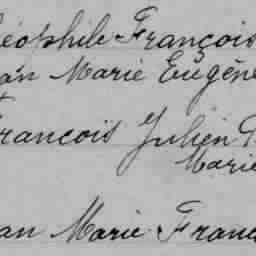 éophile François
an Marie Eugène
François Julien
Marie
an Marie Franc